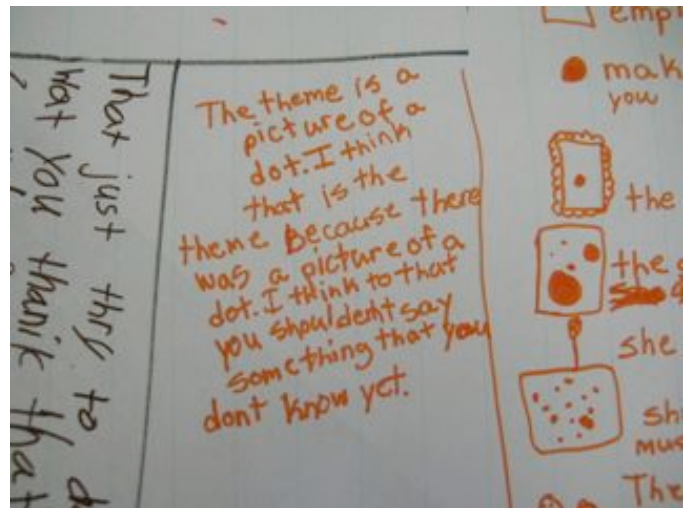 That just thry to d
wat you thanik that
The theme is a
picture of a
dot. I think
that is the
theme Because there
was a picture of a
dot. I think to that
you shouldent say
something that you
dont know yet.
empt
mak
you
the
the
she
sh
mus
The